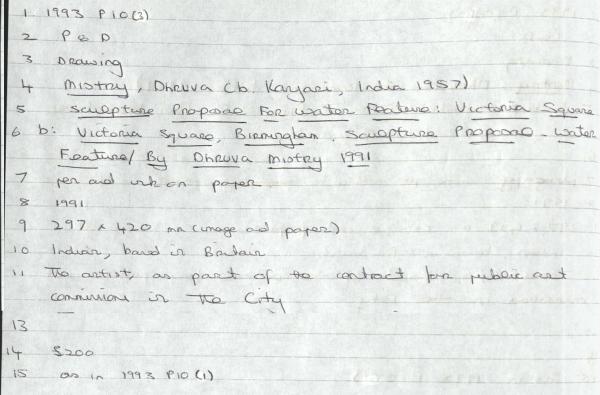 1 1993 P10(3)
2 P & D
3 Drawing
4 Mistry, Dhruva (b. Kanjari, India 1957)
5 Sculpture Proposal For Water Feature: Victoria Square
6 b: Victoria Square, Birmingham. Sculpture Proposal - Water
Feature/ By Dhruva Mistry 1991
7 pen and ink on paper
8 1991
9 297 x 420 mm (image and paper)
10 Indian, based in Britain
11 The artist, as part of the contract for public art
commissions in The City
13
14 $200
15 as in 1993 P10(1)